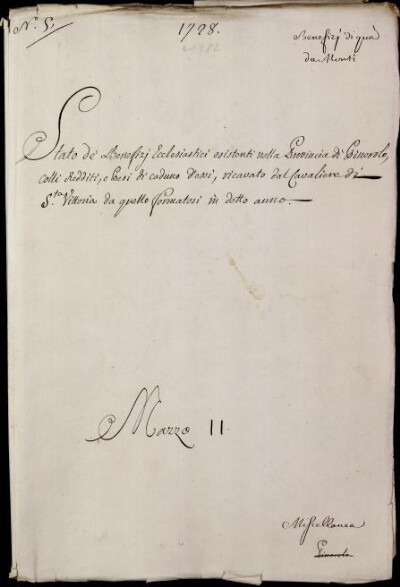 N.° 5.
1728.
Benefizj di quà
da Monti
Stato de' Benefizj Ecclesiastici esistenti nella Provincia di Pinerolo,
colli Redditi, e Pesi di caduno d'essi, ricavato dal Cavaliere di
S.ta Vittoria da quello formatosi in detto anno.
Mazzo 11
Miscellanea
Pinerolo